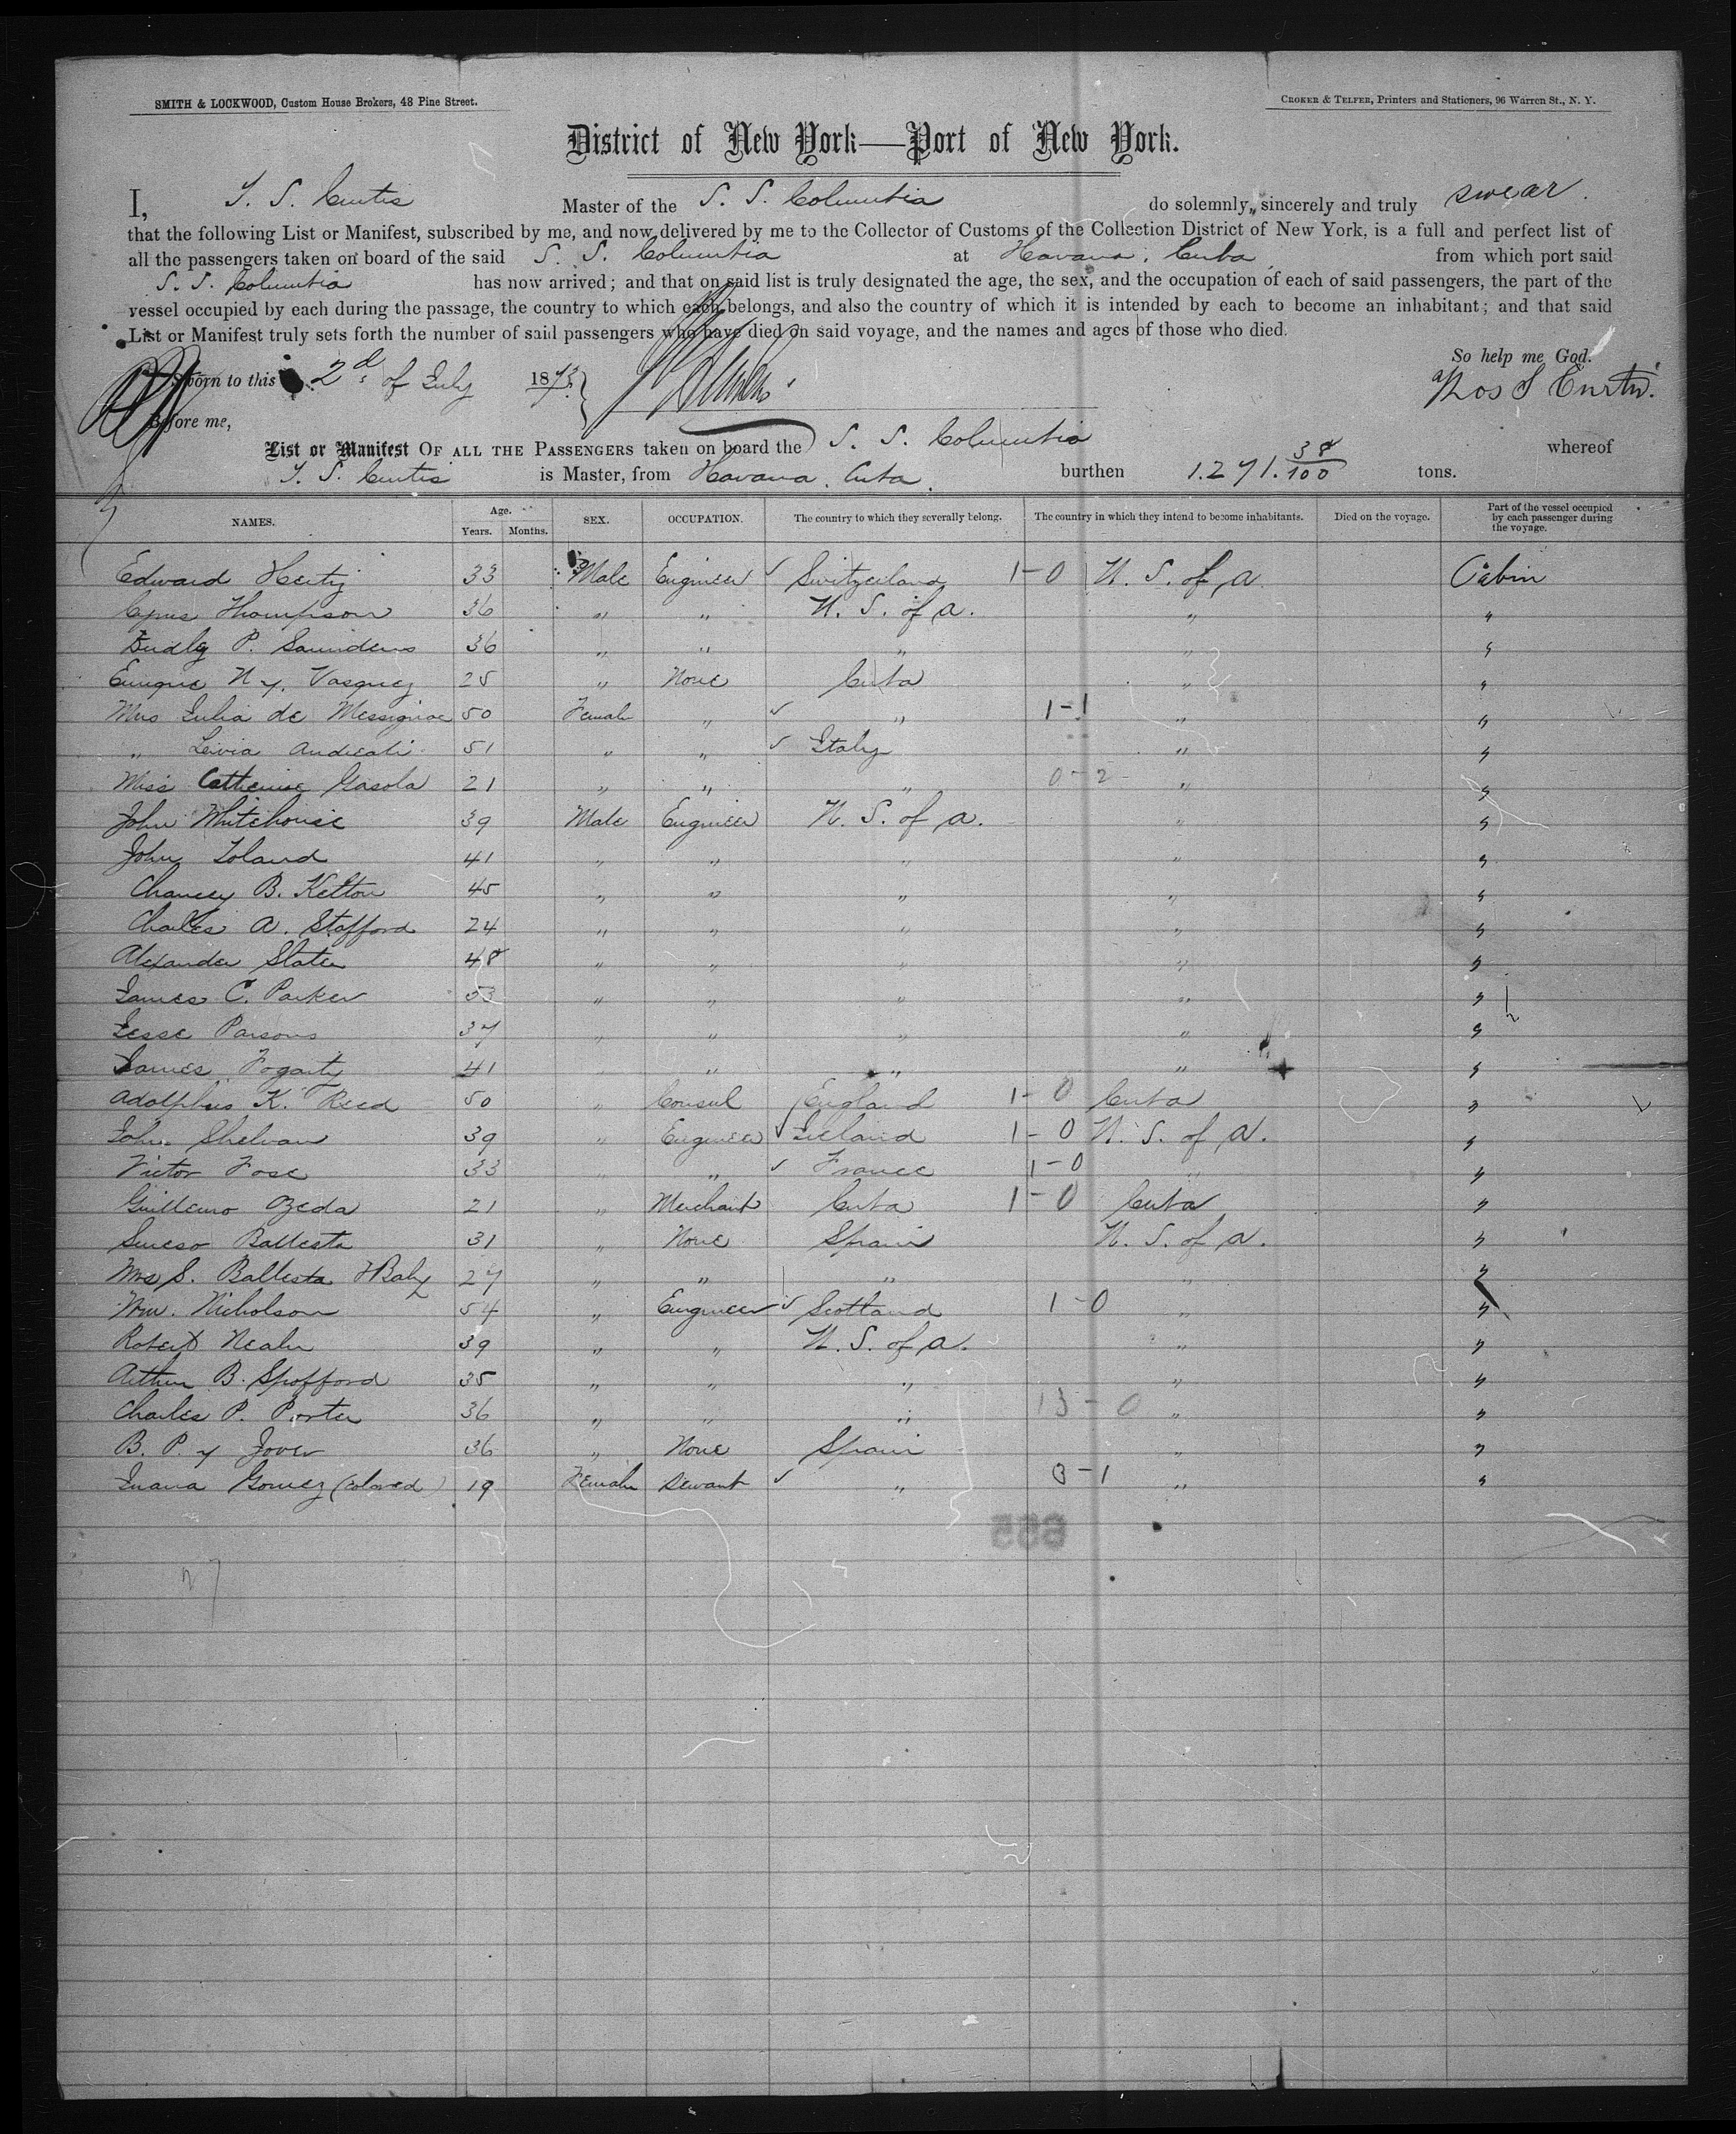 SMITH & LOCKWOOD, Custom House Brokers, 48 Pine Street.
CROKER & TELFER, Printers and Stationers, 96 Warren St., N. Y.
District of New York—Port of New York.
I, T. S. Curtis Master of the S. S. Columbia do solemnly, sincerely and truly swear.
that the following List or Manifest, subscribed by me, and now delivered by me to the Collector of Customs of the Collection District of New York, is a full and perfect list of
all the passengers taken on board of the said S. S. Columbia at Havana, Cuba from which port said
S. S. Columbia has now arrived; and that on said list is truly designated the age, the sex, and the occupation of each of said passengers, the part of the
vessel occupied by each during the passage, the country to which each belongs, and also the country of which it is intended by each to become an inhabitant; and that said
List or Manifest truly sets forth the number of said passengers who have died on said voyage, and the names and ages of those who died.
So help me God.
Sworn to this 2d of July 187
Thos S Curtis.
Before me,
List or Manifest OF ALL THE PASSENGERS taken on board the S. S. Columbia whereof
T. S. Curtis is Master, from Havana, Cuba. burthen 1.271.38/100 tons.
NAMES. Age. Years. Months. SEX. OCCUPATION. The country to which they severally belong. The country in which they intend to become inhabitants. Died on the voyage. Part of the vessel occupied by each passenger during the voyage.
Edward 33 Male Engineer ✓ Switzerland 1-0 U. S. of A Cabin
Cyrus Thompson 36 " " U. S. of A. " "
Dudley P. Saunders 36 " " " " "
Enrique N y. Vasquez 25 " None Cuba " "
Mrs Julia de 50 Female " ✓ " 1-1 " "
" Livia 51 " " ✓ Italy " "
Miss Catherine Gasola 21 " " " 0-2 " "
John Whitehouse 39 Male Engineer U. S. of A. " "
John Toland 41 " " " " "
Chancey B. Kelton 45 " " " " "
Charles A. Stafford 24 " " " " "
Alexander Slater 48 " " " " "
James C. Parker 53 " " " " "
Jesse Parsons 37 " " " " "
James Fogarty 41 " " " "
Adolphus K. Reed 50 " Consul England 1-0 Cuba "
John Shelvan 39 " Engineer ✓ Ireland 1-0 U. S. of A. "
Victor Fose 33 " " ✓ France 1-0 " "
Guillemo Ozeda 21 " Merchant Cuba 1-0 Cuba "
Ballesta 31 " None Spain U. S. of A. "
Mrs S. Ballesta & Baby 27 " " " " "
Wm. Nicholson 54 " Engineer ✓ Scotland 1-0 " "
Robert Nealer 39 " " U. S. of A. " "
Arthur B. Spofford 35 " " " " "
Charles P. Porter 36 " " " 13-0 " "
B. P. y Jover 36 " None Spain " "
Juana Gomez (colored) 19 Female Servant ✓ " 0-1 " "
655
27